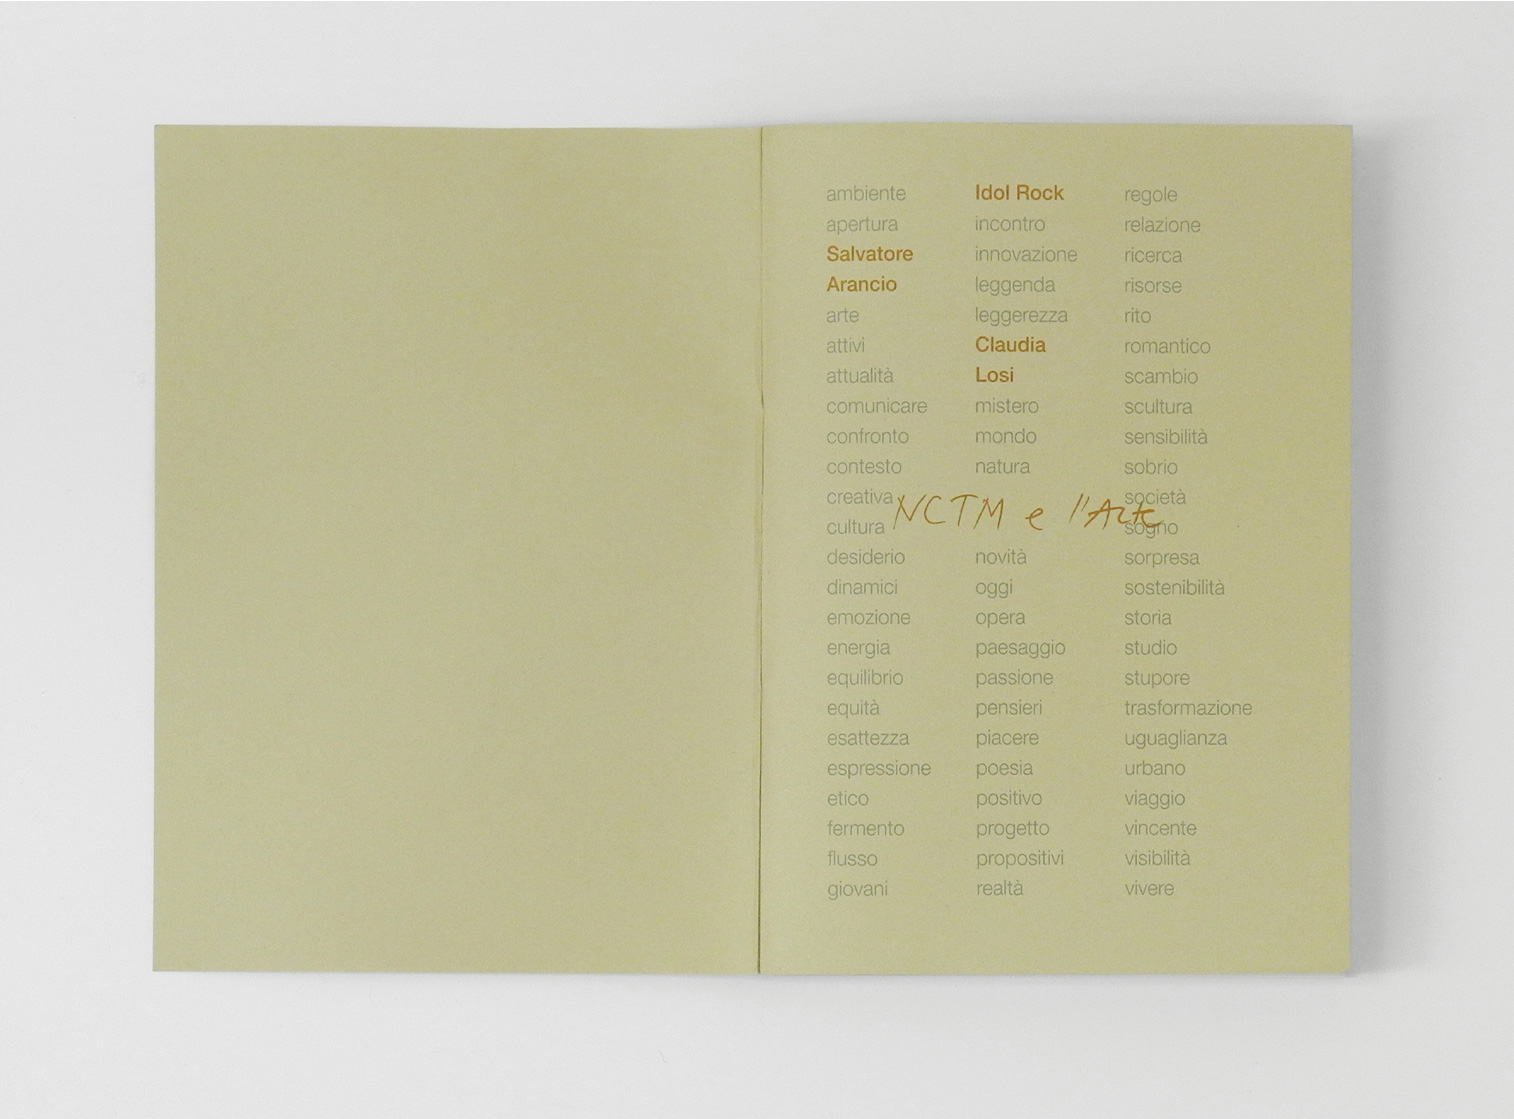 ambiente
apertura
Salvatore
Arancio
arte
attivi
attualità
comunicare
confronto
contesto
creativa
cultura
desiderio
dinamici
emozione
energia
equilibrio
equità
esattezza
espressione
etico
fermento
flusso
giovani
Idol Rock
incontro
innovazione
leggenda
leggerezza
Claudia
Losi
mistero
mondo
natura
NCTM e l'Arte
novità
oggi
opera
paesaggio
passione
pensieri
piacere
poesia
positivo
progetto
propositivi
realtà
regole
relazione
ricerca
risorse
rito
romantico
scambio
scultura
sensibilità
sobrio
società
sogno
sorpresa
sostenibilità
storia
studio
stupore
trasformazione
uguaglianza
urbano
viaggio
vincente
visibilità
vivere